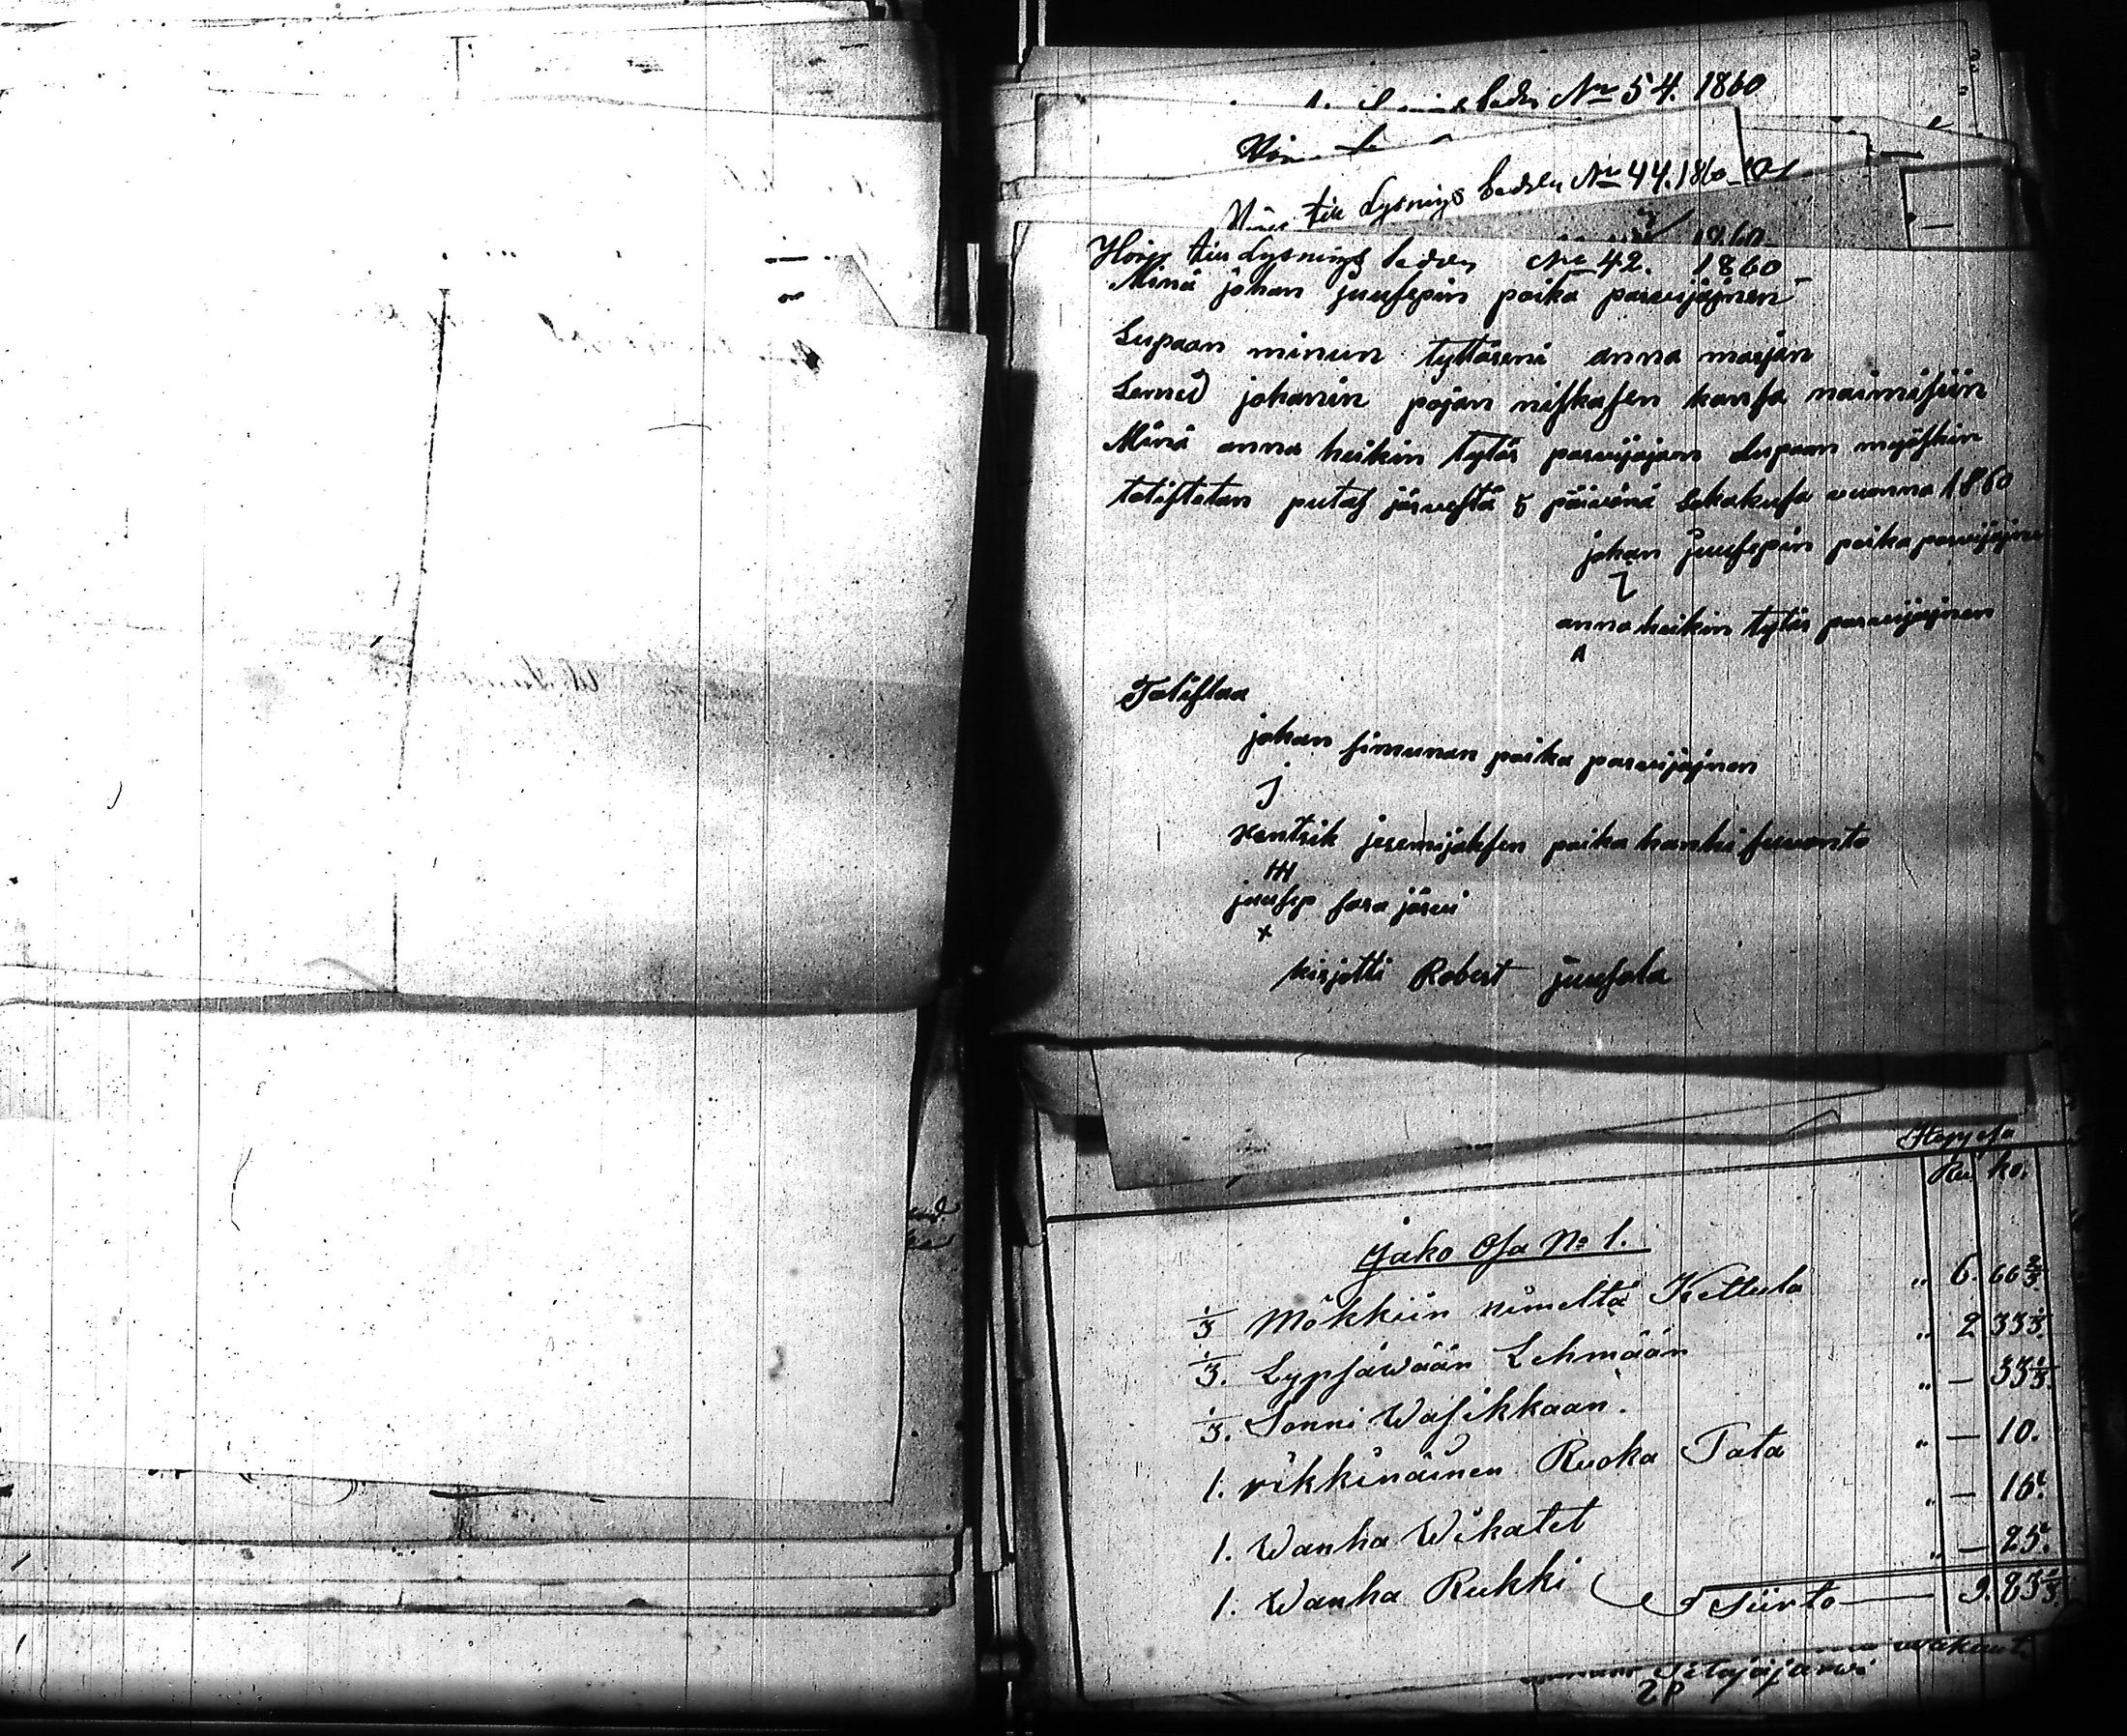 No 54. 1860
till Lysnings Sedeln No 44. 1860
Hörer till Lysnings Sedeln No 42. 1860
Minä johan juusepin poika parvijajnen
Lupaan minun tyttäreni anna marjan
johanin pojan niskasen kansa naimisiin
Minä anna heikin tytär parvijajnen Lupaan myöskin
totistetan putas järvestä 5 päivänä Lokakusa vuonna 1860
johan juusepin poika parvijajnen
anna heikin tytär parvijajnen
A
Totistaa
johan simunan poika parvijajnen
J
Hentrik jeremijaksen poika hanhi suvanto
HH
juusep sara järvi
x
kirjotti Robert juusola
Ru. ko.
Jako Osa No 1.
1/3 Mökkiin nimeltä Kettula " 6. 66 2/3.
1/3. Lypsäwään Lehmään " 2 33 1/3.
1/3. Sonni Wasikkaan. " — 33 1/3.
1. rikkinäinen Ruoka Pata " — 10.
1. Wanha Wikatet " — 16.
1. Wanha Rukki " — 25.
Siirto — 9. 83 1/3.